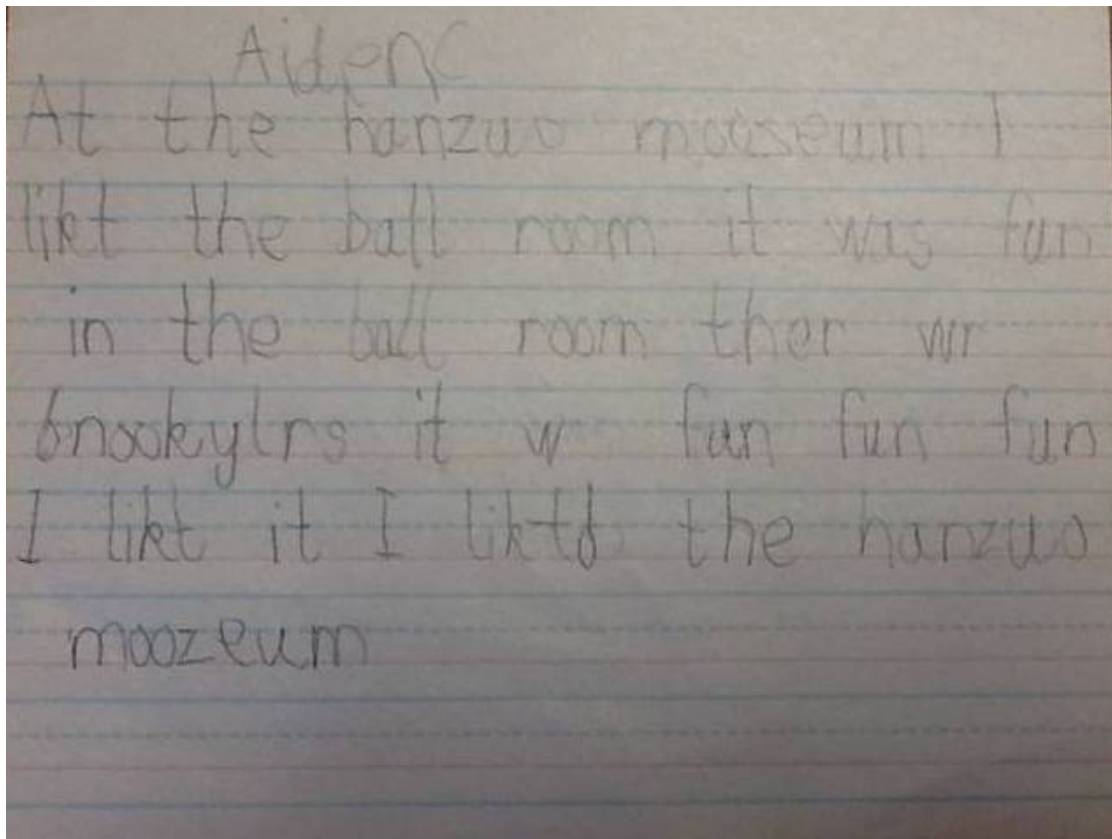 Aiden C
At the hanzuo moozeum I
likt the ball room it was fun
in the ball room ther wr
bnookylrs it w fun fun fun
I likt it I liktd the hanzuo
moozeum